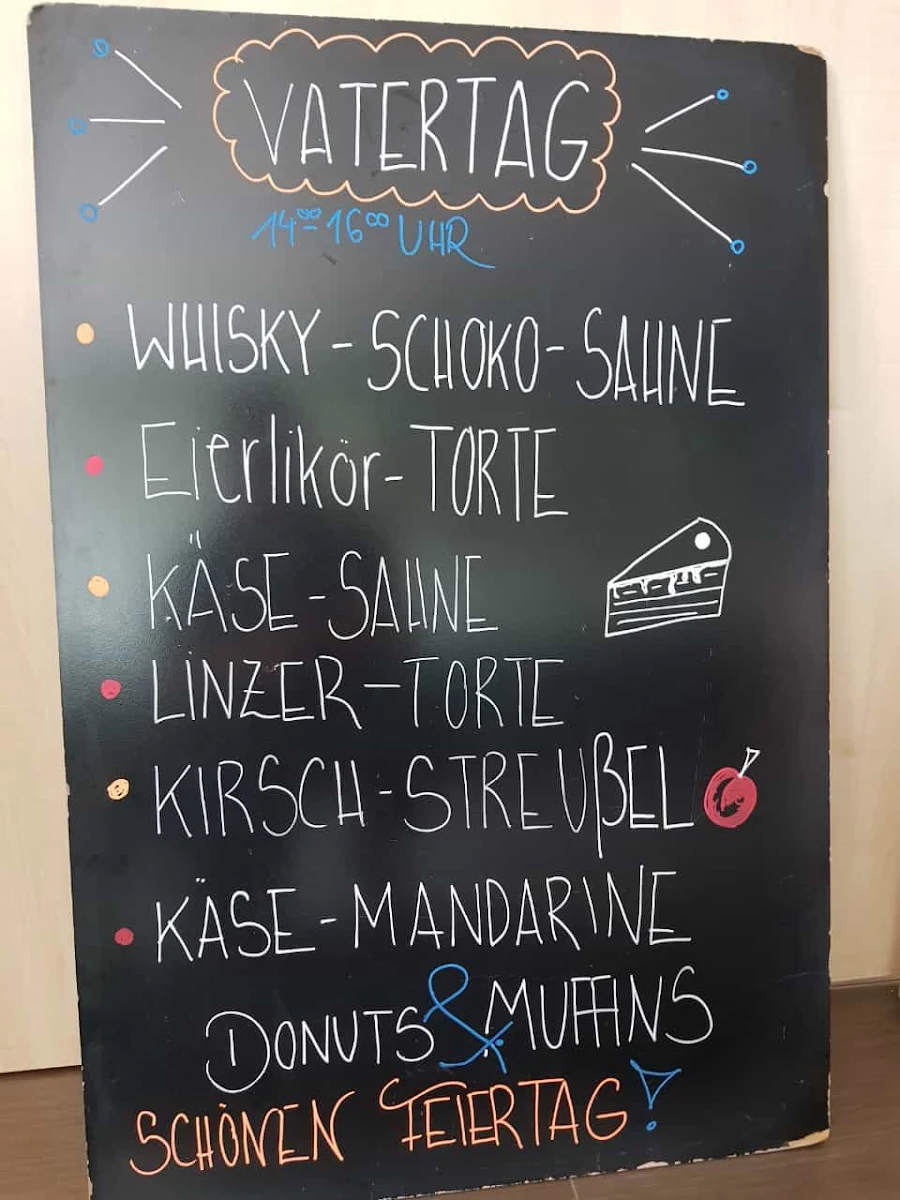 VATERTAG
14⁰⁰-16⁰⁰ UHR
WHISKY-SCHOKO-SAHNE
Eierlikör-TORTE
KÄSE-SAHNE
LINZER-TORTE
KIRSCH-STREUßEL
KÄSE-MANDARINE
DONUTS & MUFFINS
SCHÖNEN FEIERTAG!